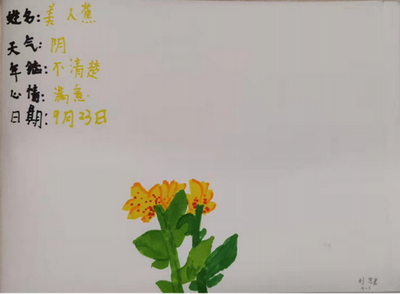 姓名:美人蕉
天气:阴
年龄:不清楚
心情:满意
日期:9月23日